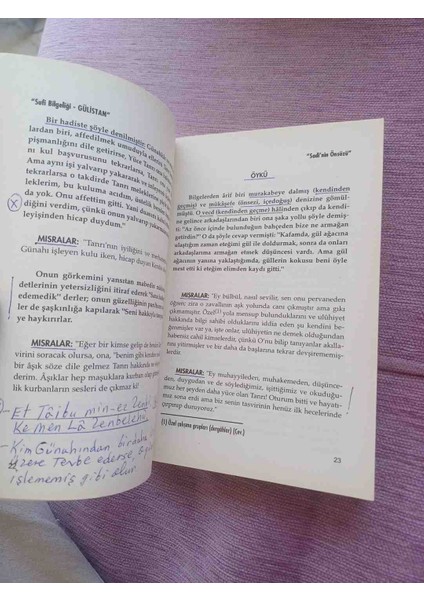 "Sufi Bilgeliği - GÜLİSTAN"
Bir hadiste şöyle denilmiştir: Günahkar-
lardan biri, affedilmek umuduyla ellerini
pişmanlığını dile getirirse, Yüce Tanrı
nı kul başvurusunu tekrarlar, Tanrı
Ama aynı işi yalvarıp yakararak
tekrarlarsa o takdirde Tanrı melek
leklerim, bu kuluma acıdım, üstelik
da yok. Onu affettim. Yani duasını kabul
diğini verdim, çünkü onun yalvarıp yakar
leyişinden hicap duydum."
MISRALAR: "Tanrı'nın iyiliğini ve
Günahı işleyen kulu iken, hicap duyan Kendi
Onun görkemini yansıtan
detlerinin yetersizliğini itiraf edemi "
edemedik" derler; onun güzelliğinin
ler de şaşkınlığa kapılarak "Seni hakkıyla
ye haykırırlar.
MISRALAR: "Eğer bir kimse gelip de
virini soracak olursa, ona, "benim gibi kendi
bir âşık söze dile gelmez Tanrı hakkında
derim. Âşıklar hep maşuklara kurban
lik kurbanların sesleri de çıkmaz ki!
Et Tâibu min-ez
Kemen Lâ Zenbeleh
Kim Günahından bir daha
üzere Tevbe ederse,
işlememiş gibi olur
"Sadi'nin Önsözü"
ÖYKÜ
Bilgelerden ârif biri murakabeye dalmış (kendinden
geçmiş) ve mükâşefe (ilmsezi, içedoğuş) denizine gömül-
müştü. O vecd (kendinden geçme) hâlinden çıkıp da kendi-
ne gelince arkadaşlarından biri ona şaka yollu şöyle demiş-
ti: "Az önce içinde bulunduğun bahçeden bize ne armağan
getirdin?" O da şöyle cevap vermişti: "Kafamda, gül ağacına
ulaştığım zaman eteğini gül ile doldurmak, sonra da onları
arkadaşlarıma armağan etmek düşüncesi vardı. Ama gül
ağacının yanına yaklaştığımda, güllerin kokusu beni öyle
mest etti ki eteğim elimden kaydı gitti."
MISRALAR: "Ey bülbül, nasıl sevilir, sen onu pervaneden
öğren; zira o zavallının aşk yolunda canı çıkmıştır ama sesi
çıkmamıştır. Özel(1) yola mensup bulunduklarını ve ulûhiyet
hakkında bilgi sahibi olduklarını iddia eden şu kendini be-
ğenmişler var ya, işte onlar, ulûhiyetin ne demek olduğundan
habersiz cahil kimselerdir, çünkü O'nu bilip tanıyanlar aklı
yitirmişler ve bir daha da başlarına tekrar devşirememişler-
dir.
MISRALAR: "Ey muhayyileden, muhakemeden, düşünce-
den, duygudan ve de söylediğimiz, işittiğimiz ve okuduğu-
muz her şeyden daha yüce olan Tanrı! Oturum bitti ve hayatı-
mız sona erdi ama biz senin tasvirinin henüz ilk hecelerinde
çırpınıp duruyoruz."
(1) Özel çalışma grupları (dergâhlar) (Çev.)
23